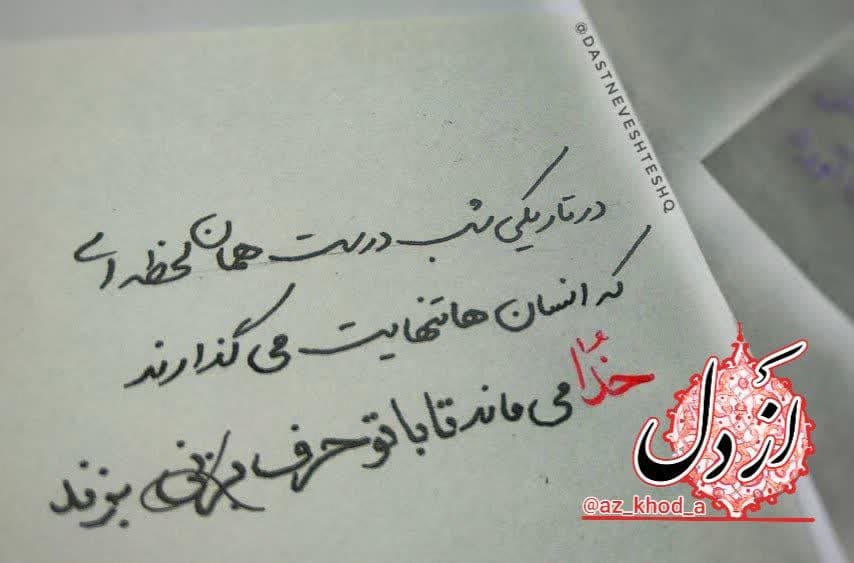 در تاریکی شب درست همان لحظه ای
که انسان ها تنهایت می گذارند
خدا می ماند تا با تو حرف بزند
@DASTNEVESHTESHQ
از دل
@az_khod_a